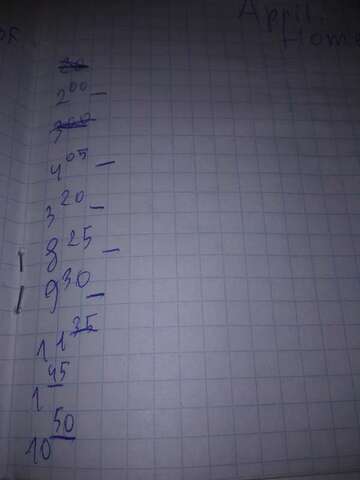 April
Home
2⁰⁰ –
4⁰⁵ –
3²⁰ –
8²⁵ –
9³⁰ –
11³⁵
1⁴⁵
10⁵⁰